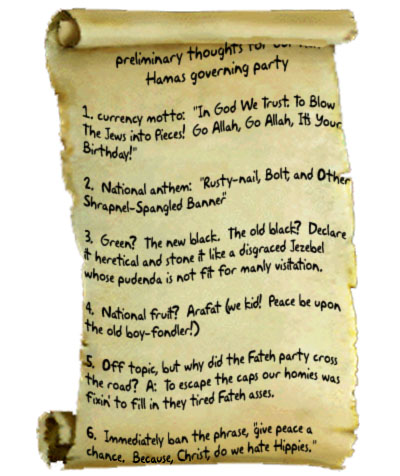 preliminary thoughts for our
Hamas governing party
1. currency motto: "In God We Trust. To Blow
The Jews into Pieces! Go Allah, Go Allah, It's Your
Birthday!"
2. National anthem: "Rusty-nail, Bolt, and Other
Shrapnel-Spangled Banner"
3. Green? The new black. The old black? Declare
it heretical and stone it like a disgraced Jezebel
whose pudenda is not fit for manly visitation.
4. National fruit? Arafat (we kid! Peace be upon
the old boy-fondler!)
5. Off topic, but why did the Fateh party cross
the road? A: To escape the caps our homies was
fixin' to fill in they tired Fateh asses.
6. Immediately ban the phrase, "give peace a
chance. Because, Christ, do we hate Hippies."